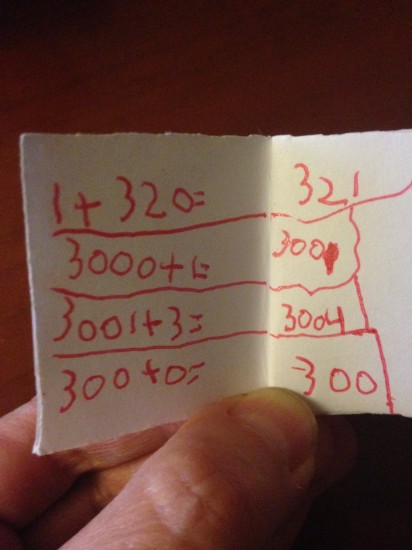 1+ 320= 321
3000+1= 3001
3001+3= 3004
300+0= 300